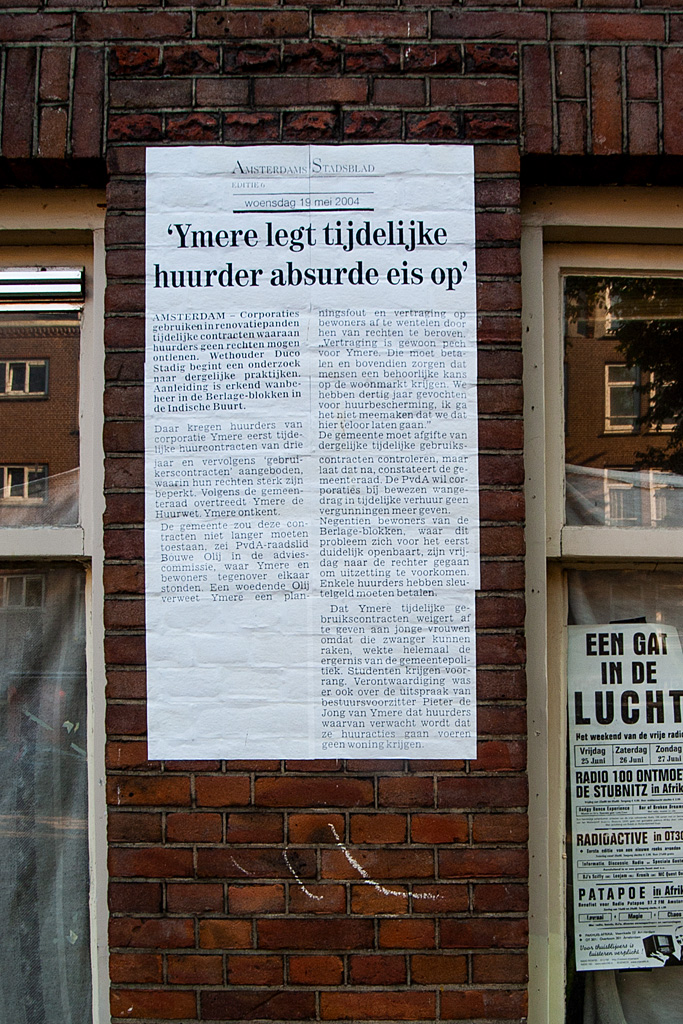 AMSTERDAMS STADSBLAD
EDITIE 6
woensdag 19 mei 2004
‘Ymere legt tijdelijke
huurder absurde eis op’
AMSTERDAM – Corporaties
gebruiken in renovatiepanden
tijdelijke contracten waaraan
huurders geen rechten mogen
ontlenen. Wethouder Duco
Stadig begint een onderzoek
naar dergelijke praktijken.
Aanleiding is erkend wanbe-
heer in de Berlage-blokken in
de Indische Buurt.
Daar kregen huurders van
corporatie Ymere eerst tijde-
lijke huurcontracten van drie
jaar en vervolgens ‘gebrui-
kerscontracten’ aangeboden,
waarin hun rechten sterk zijn
beperkt. Volgens de gemeen-
teraad overtreedt Ymere de
Huurwet. Ymere ontkent.
De gemeente zou deze con-
tracten niet langer moeten
toestaan, zei PvdA-raadslid
Bouwe Olij in de advies-
commissie, waar Ymere en
bewoners tegenover elkaar
stonden. Een woedende Olij
verweet Ymere een plan-
ningsfout en vertraging op
bewoners af te wentelen door
hen van rechten te beroven.
„Vertraging is gewoon pech
voor Ymere. Die moet beta-
len en bovendien zorgen dat
mensen een behoorlijke kans
op de woonmarkt krijgen. We
hebben dertig jaar gevochten
voor huurbescherming, ik ga
het niet meemaken dat we dat
hier teloor laten gaan.”
De gemeente moet afgifte van
dergelijke tijdelijke gebruiks-
contracten controleren, maar
laat dat na, constateert de ge-
meenteraad. De PvdA wil cor-
poraties bij bewezen wange-
drag in tijdelijke verhuur geen
vergunningen meer geven.
Negentien bewoners van de
Berlage-blokken, waar dit
probleem zich voor het eerst
duidelijk openbaart, zijn vrij-
dag naar de rechter gegaan
om uitzetting te voorkomen.
Enkele huurders hebben sleu-
telgeld moeten betalen.
Dat Ymere tijdelijke ge-
bruikscontracten weigert af
te geven aan jonge vrouwen
omdat die zwanger kunnen
raken, wekte helemaal de
ergernis van de gemeentepoli-
tiek. Studenten krijgen voor-
rang. Verontwaardiging was
er ook over de uitspraak van
bestuursvoorzitter Pieter de
Jong van Ymere dat huurders
waarvan verwacht wordt dat
ze huuracties gaan voeren
geen woning krijgen.
EEN GAT
IN DE
LUCHT
Het weekend van de vrije radio
Vrijdag Zaterdag Zondag
25 Juni 26 Juni 27 Juni
RADIO 100 ONTMOE
DE STUBNITZ in Afrik
RADIOACTIVE in OT30
PATAPOE in Afri
Benefiet voor Radio Patapoe 97.2 FM
Lovroal Magie Chaos
Voor thuisblijvers is
luisteren verplicht!